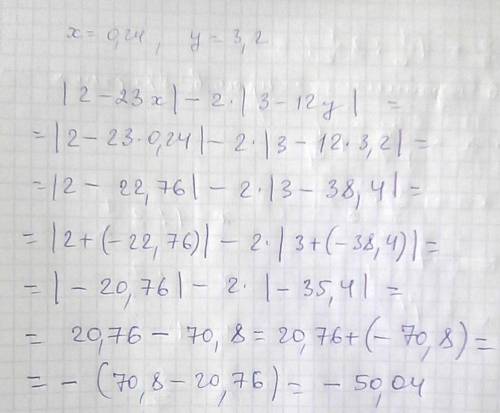 x = 0,24, y = 3,2
|2 - 23x| - 2·|3 - 12y| =
= |2 - 23·0,24| - 2·|3 - 12·3,2| =
= |2 - 22,76| - 2·|3 - 38,4| =
= |2 + (-22,76)| - 2·|3 + (-38,4)| =
= |-20,76| - 2·|-35,4| =
= 20,76 - 70,8 = 20,76 + (-70,8) =
= -(70,8 - 20,76) = -50,04